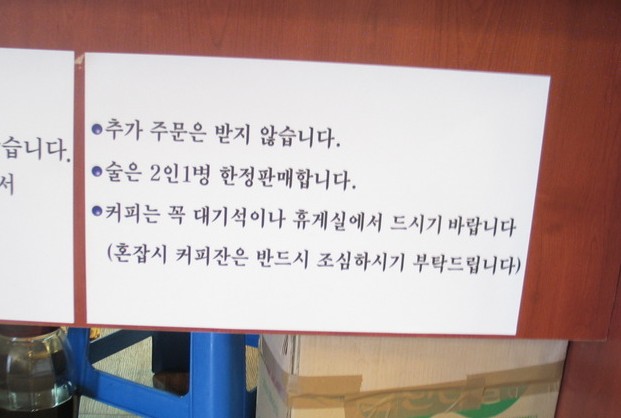 습니다.
서
●추가 주문은 받지 않습니다.
●술은 2인1병 한정판매합니다.
●커피는 꼭 대기석이나 휴게실에서 드시기 바랍니다
(혼잡시 커피잔은 반드시 조심하시기 부탁드립니다)